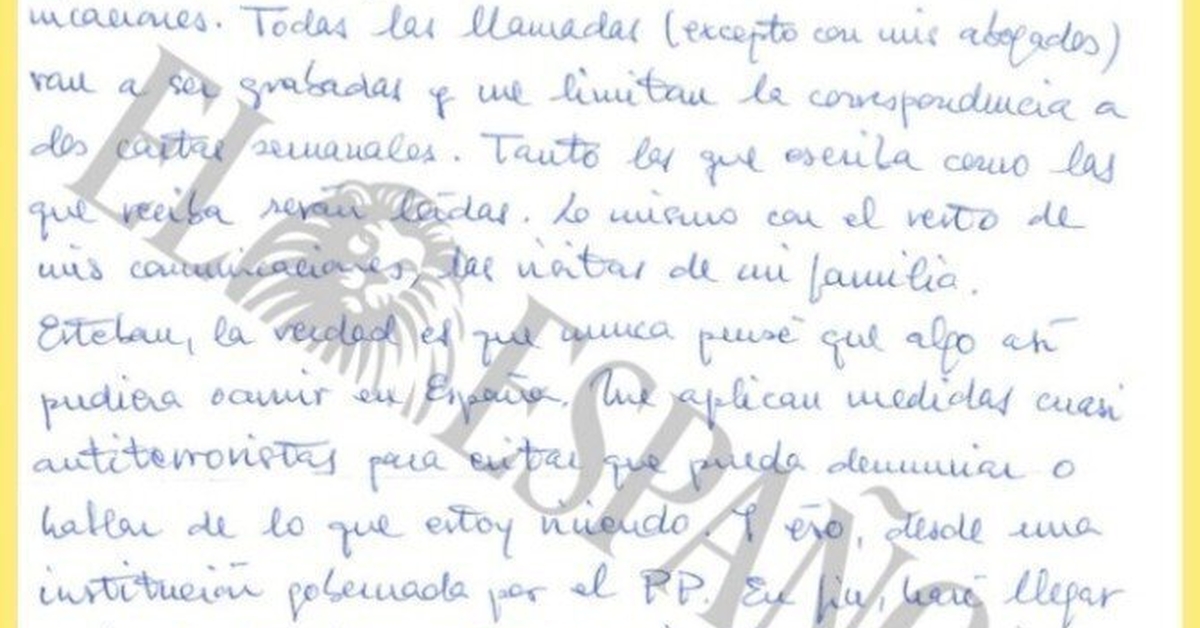 nicaciones. Todas las llamadas (excepto con mis abogados)
van a ser grabadas y me limitan la correspondencia a
dos cartas semanales. Tanto las que escriba como las
que reciba serán leídas. Lo mismo con el resto de
mis comunicaciones, las visitas de mi familia.
Esteban, la verdad es que nunca pensé que algo así
pudiera ocurrir en España. Me aplican medidas cuasi
antiterroristas para evitar que pueda denunciar o
hablar de lo que estoy viviendo. Y eso, desde una
institución gobernada por el PP. En fin, haré llegar
EL ESPAÑO